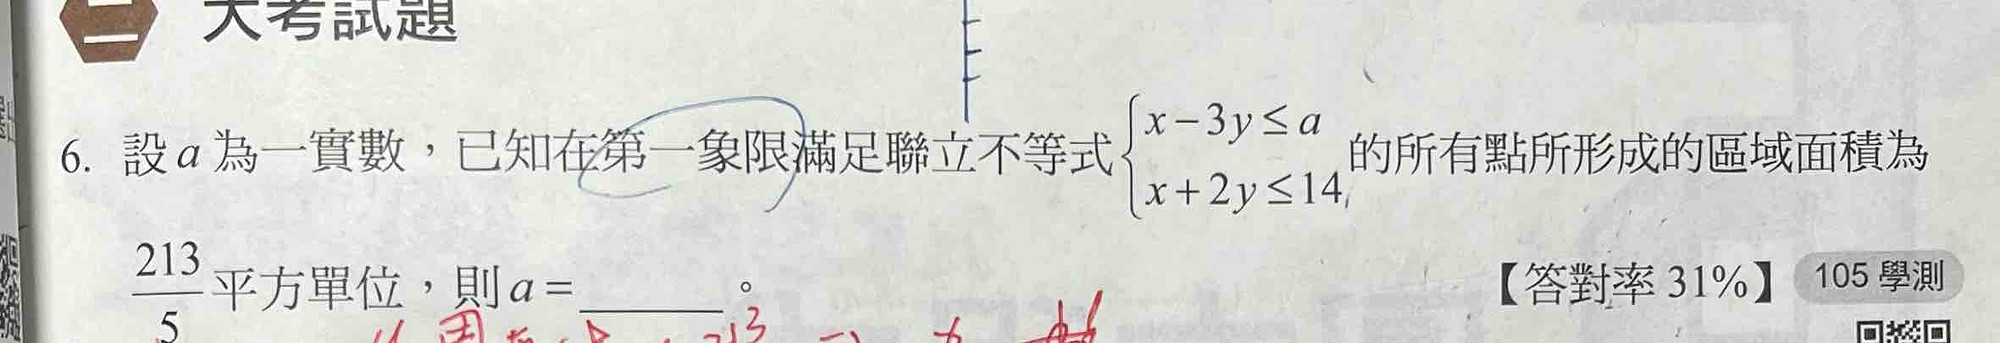 二 大考試題
6. 設 a 為一實數，已知在第一象限滿足聯立不等式 { x − 3y ≤ a
x + 2y ≤ 14 的所有點所形成的區域面積為
213/5 平方單位，則 a = ______。 【答對率 31%】 105 學測